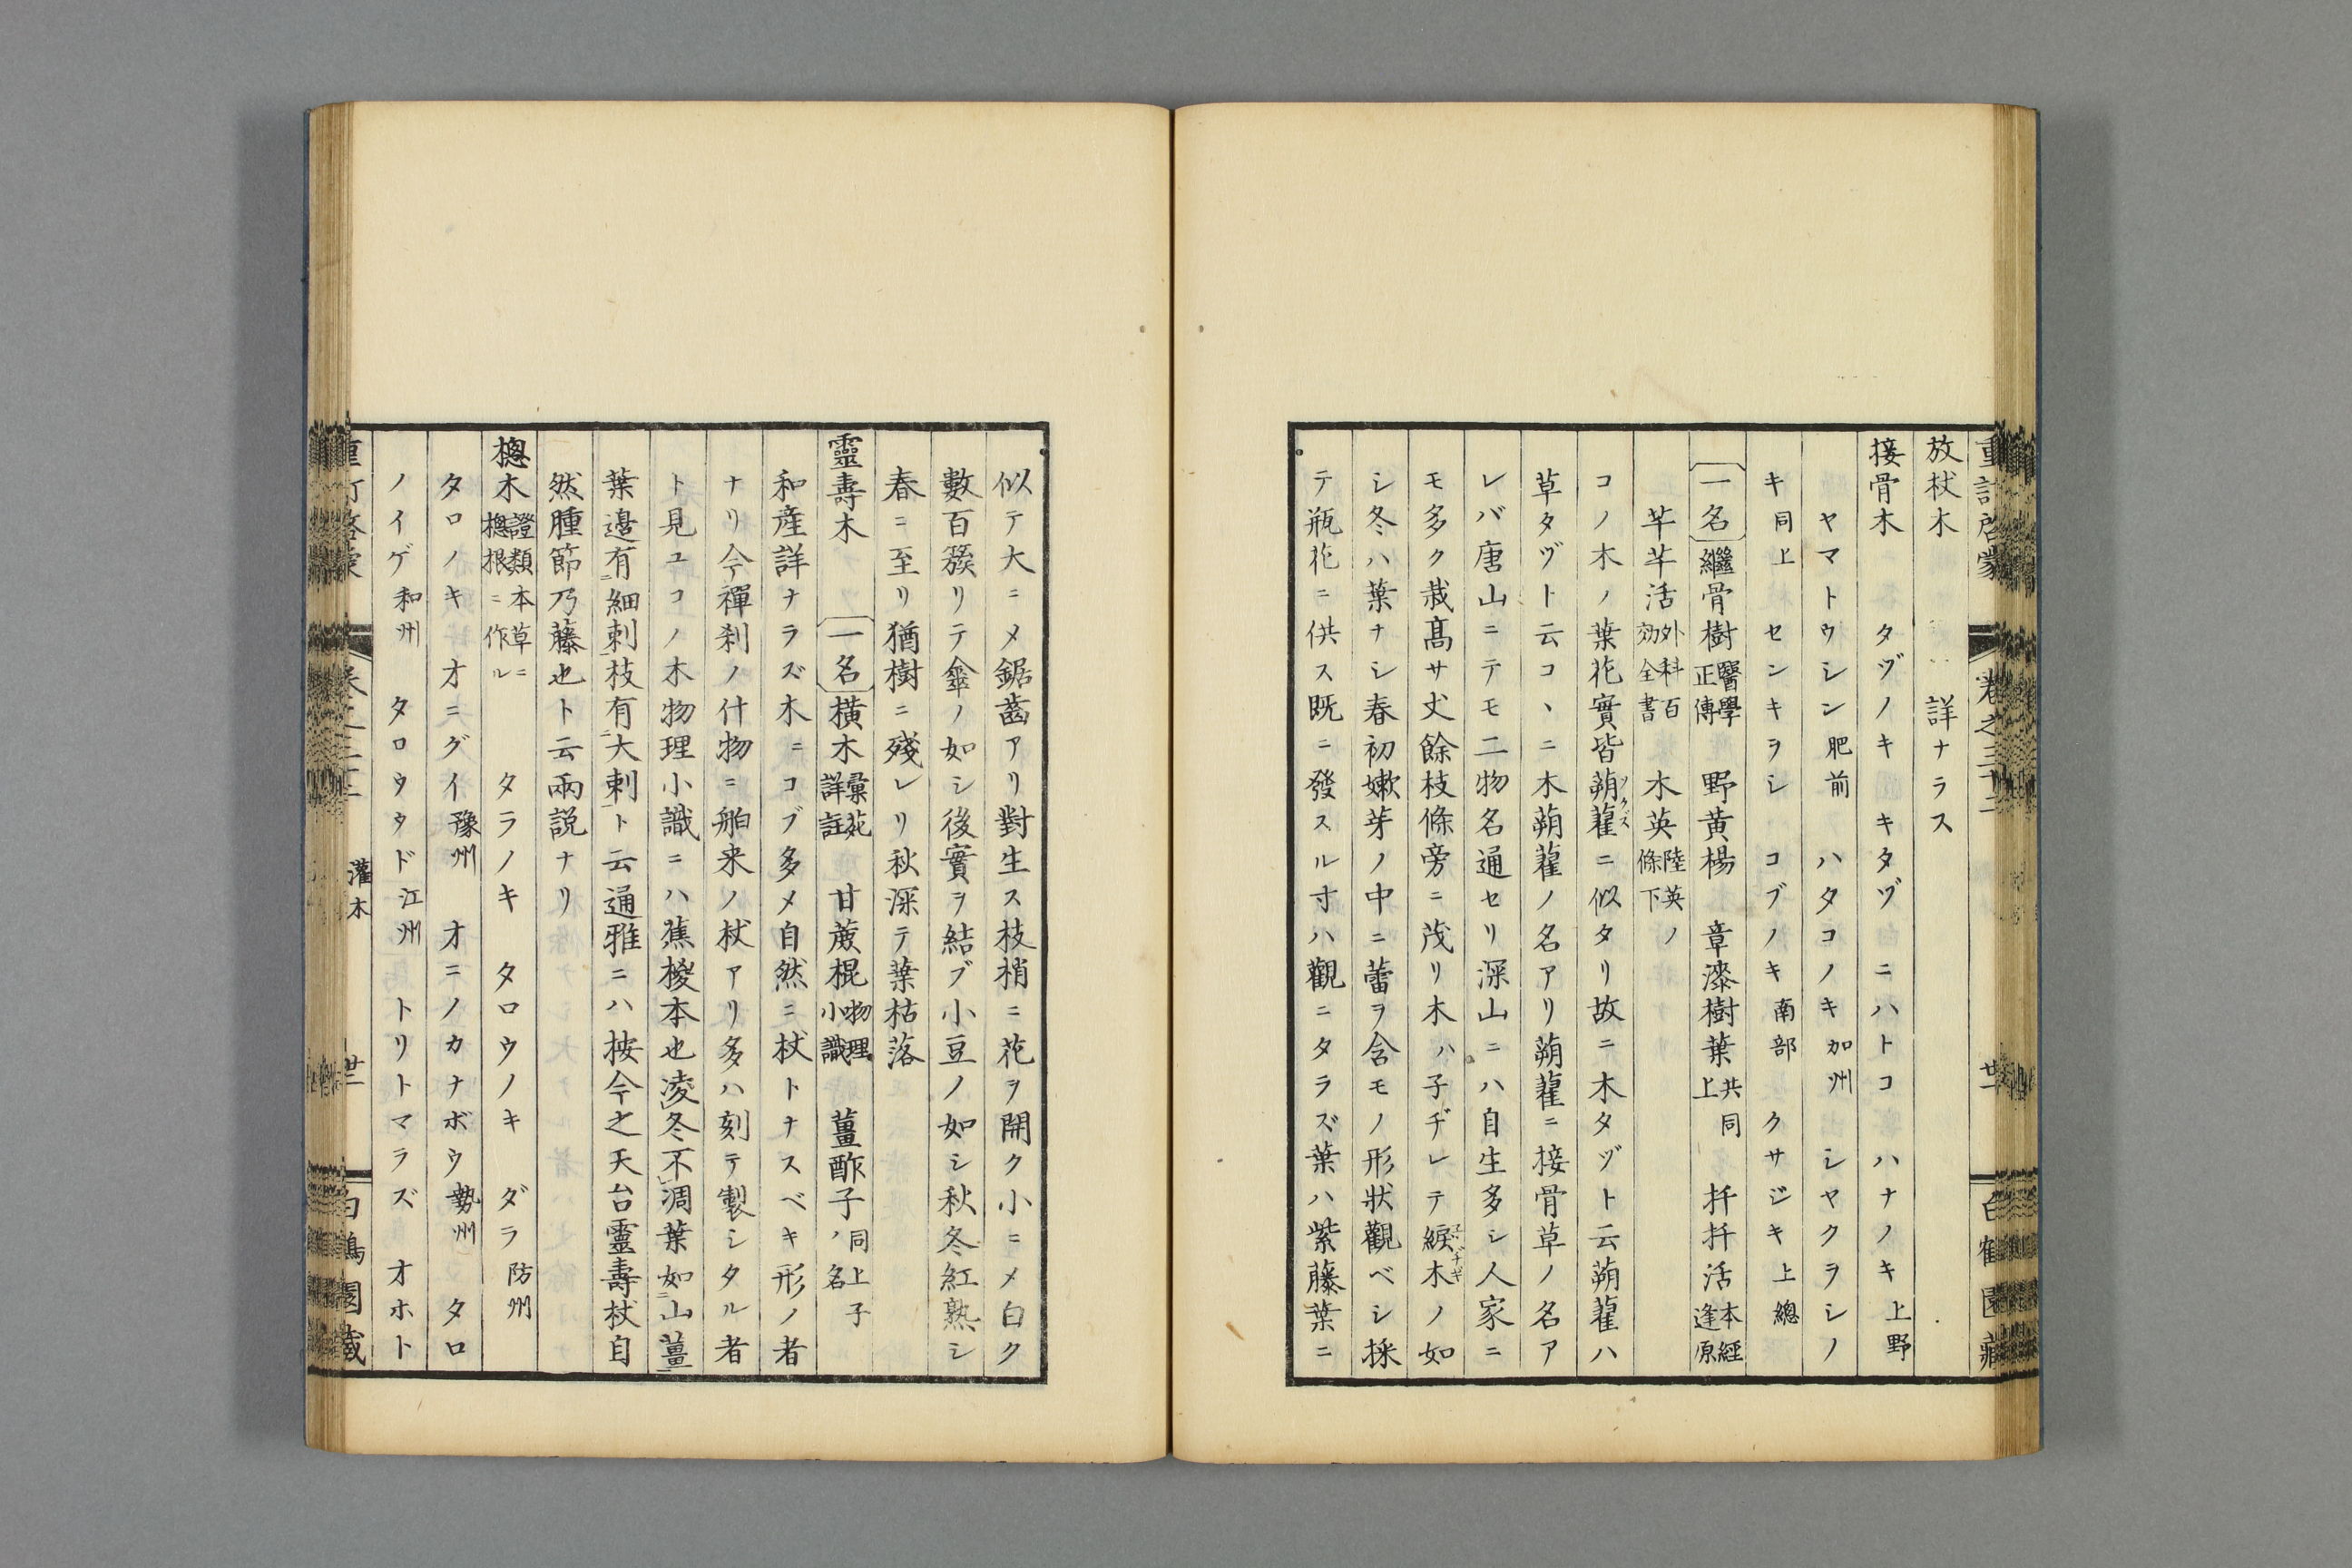 放杖木　　詳ナラス
接骨木　タヅノキ　キタヅ　ニハトコ　ハナノキ上野
ヤマトウシン肥前　ハタコノキ加州　シヤクラシノ
キ同上　センキヲシ　コブノキ南部　クサジキ上總
一名　繼骨樹醫學正傳　野黄楊　章漆樹葉共同上　扦扦活本經逢原
芊芊活外科百効全書　木英陸英ノ條下
コノ木ノ葉花實皆蒴藋ソクズニ似タリ故ニ木タヅト云蒴藋ハ
草タヅト云コヽニ木蒴藋ノ名アリ蒴藋ニ接骨草ノ名ア
レバ唐山ニテモ二物名通セリ深山ニハ自生多シ人家ニ
モ多ク栽髙サ丈餘枝條旁ニ茂リ木ハ子ヂレテ綟木子ヂキノ如
シ冬ハ葉ナシ春初嫩芽ノ中ニ蕾ヲ含モノ形狀觀ベシ採
テ瓶花ニ供ス既ニ發スル寸ハ觀ニタラズ葉ハ紫藤葉ニ
似テ大ニメ鋸齒アリ對生ス枝梢ニ花ヲ開ク小ニメ白ク
數百簇リテ傘ノ如シ後實ヲ結ブ小豆ノ如シ秋冬紅熟シ
春ニ至リ猶樹ニ殘レリ秋深テ葉枯落
靈壽木　一名　橫木彙苑詳註　甘蔗棍物理小識　薑酢子同上子ノ名
和産詳ナラズ木ニコブ多メ自然ニ杖トナスベキ形ノ者
ナリ今禪刹ノ什物ニ舶来ノ杖アリ多ハ刻テ製シタル者
ト見ユコノ木物理小識ニハ蕉椶本也凌冬不凋葉如山薑
葉邉有細刺枝有大刺ト云通雅ニハ按今之天台靈壽杖自
然腫節乃藤也ト云兩説ナリ
楤木證類本草ニ楤根ニ作ル　タラノキ　タロウノキ　ダラ防州
タロノキ　オニグイ豫州　オニノカナボウ勢州　タロ
ノイゲ和州　タロウウド江州　トリトマラズ　オホト
灌木